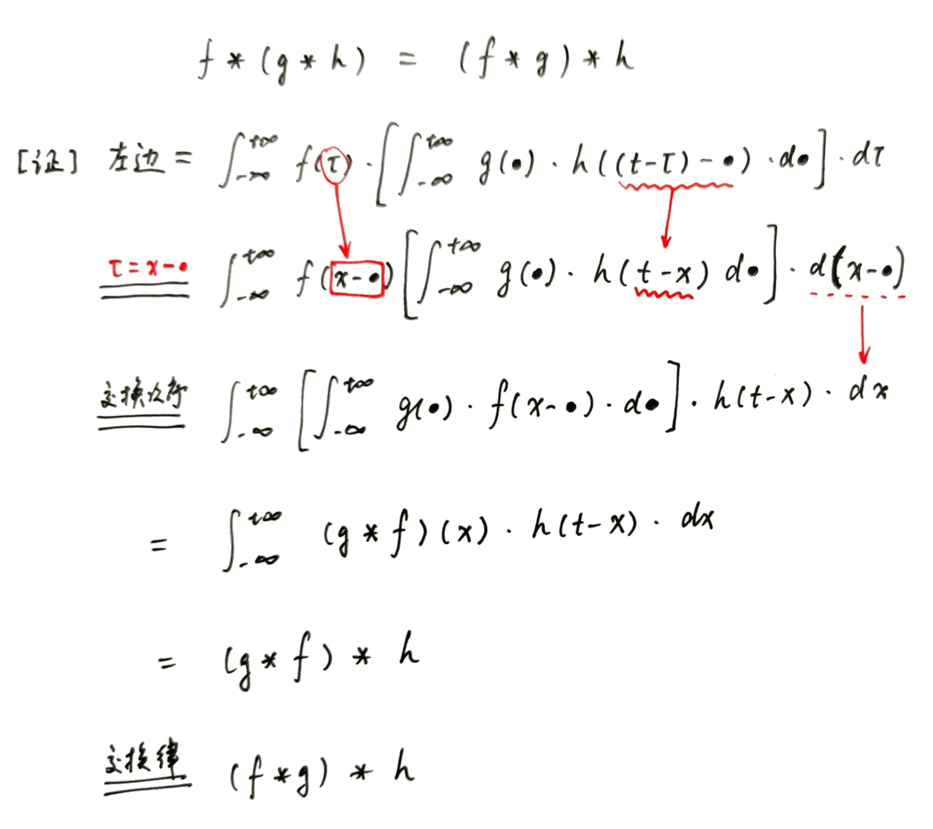 f * (g * h) = (f * g) * h
[证] 左边 = ∫_{-∞}^{+∞} f(τ) · [∫_{-∞}^{+∞} g(•) · h((t-τ)-•) · d•] · dτ
τ=x-• ∫_{-∞}^{+∞} f(x-•) [∫_{-∞}^{+∞} g(•) · h(t-x) d•] · d(x-•)
交换次序 ∫_{-∞}^{+∞} [∫_{-∞}^{+∞} g(•) · f(x-•) · d•] · h(t-x) · dx
= ∫_{-∞}^{+∞} (g * f)(x) · h(t-x) · dx
= (g * f) * h
交换律 (f * g) * h